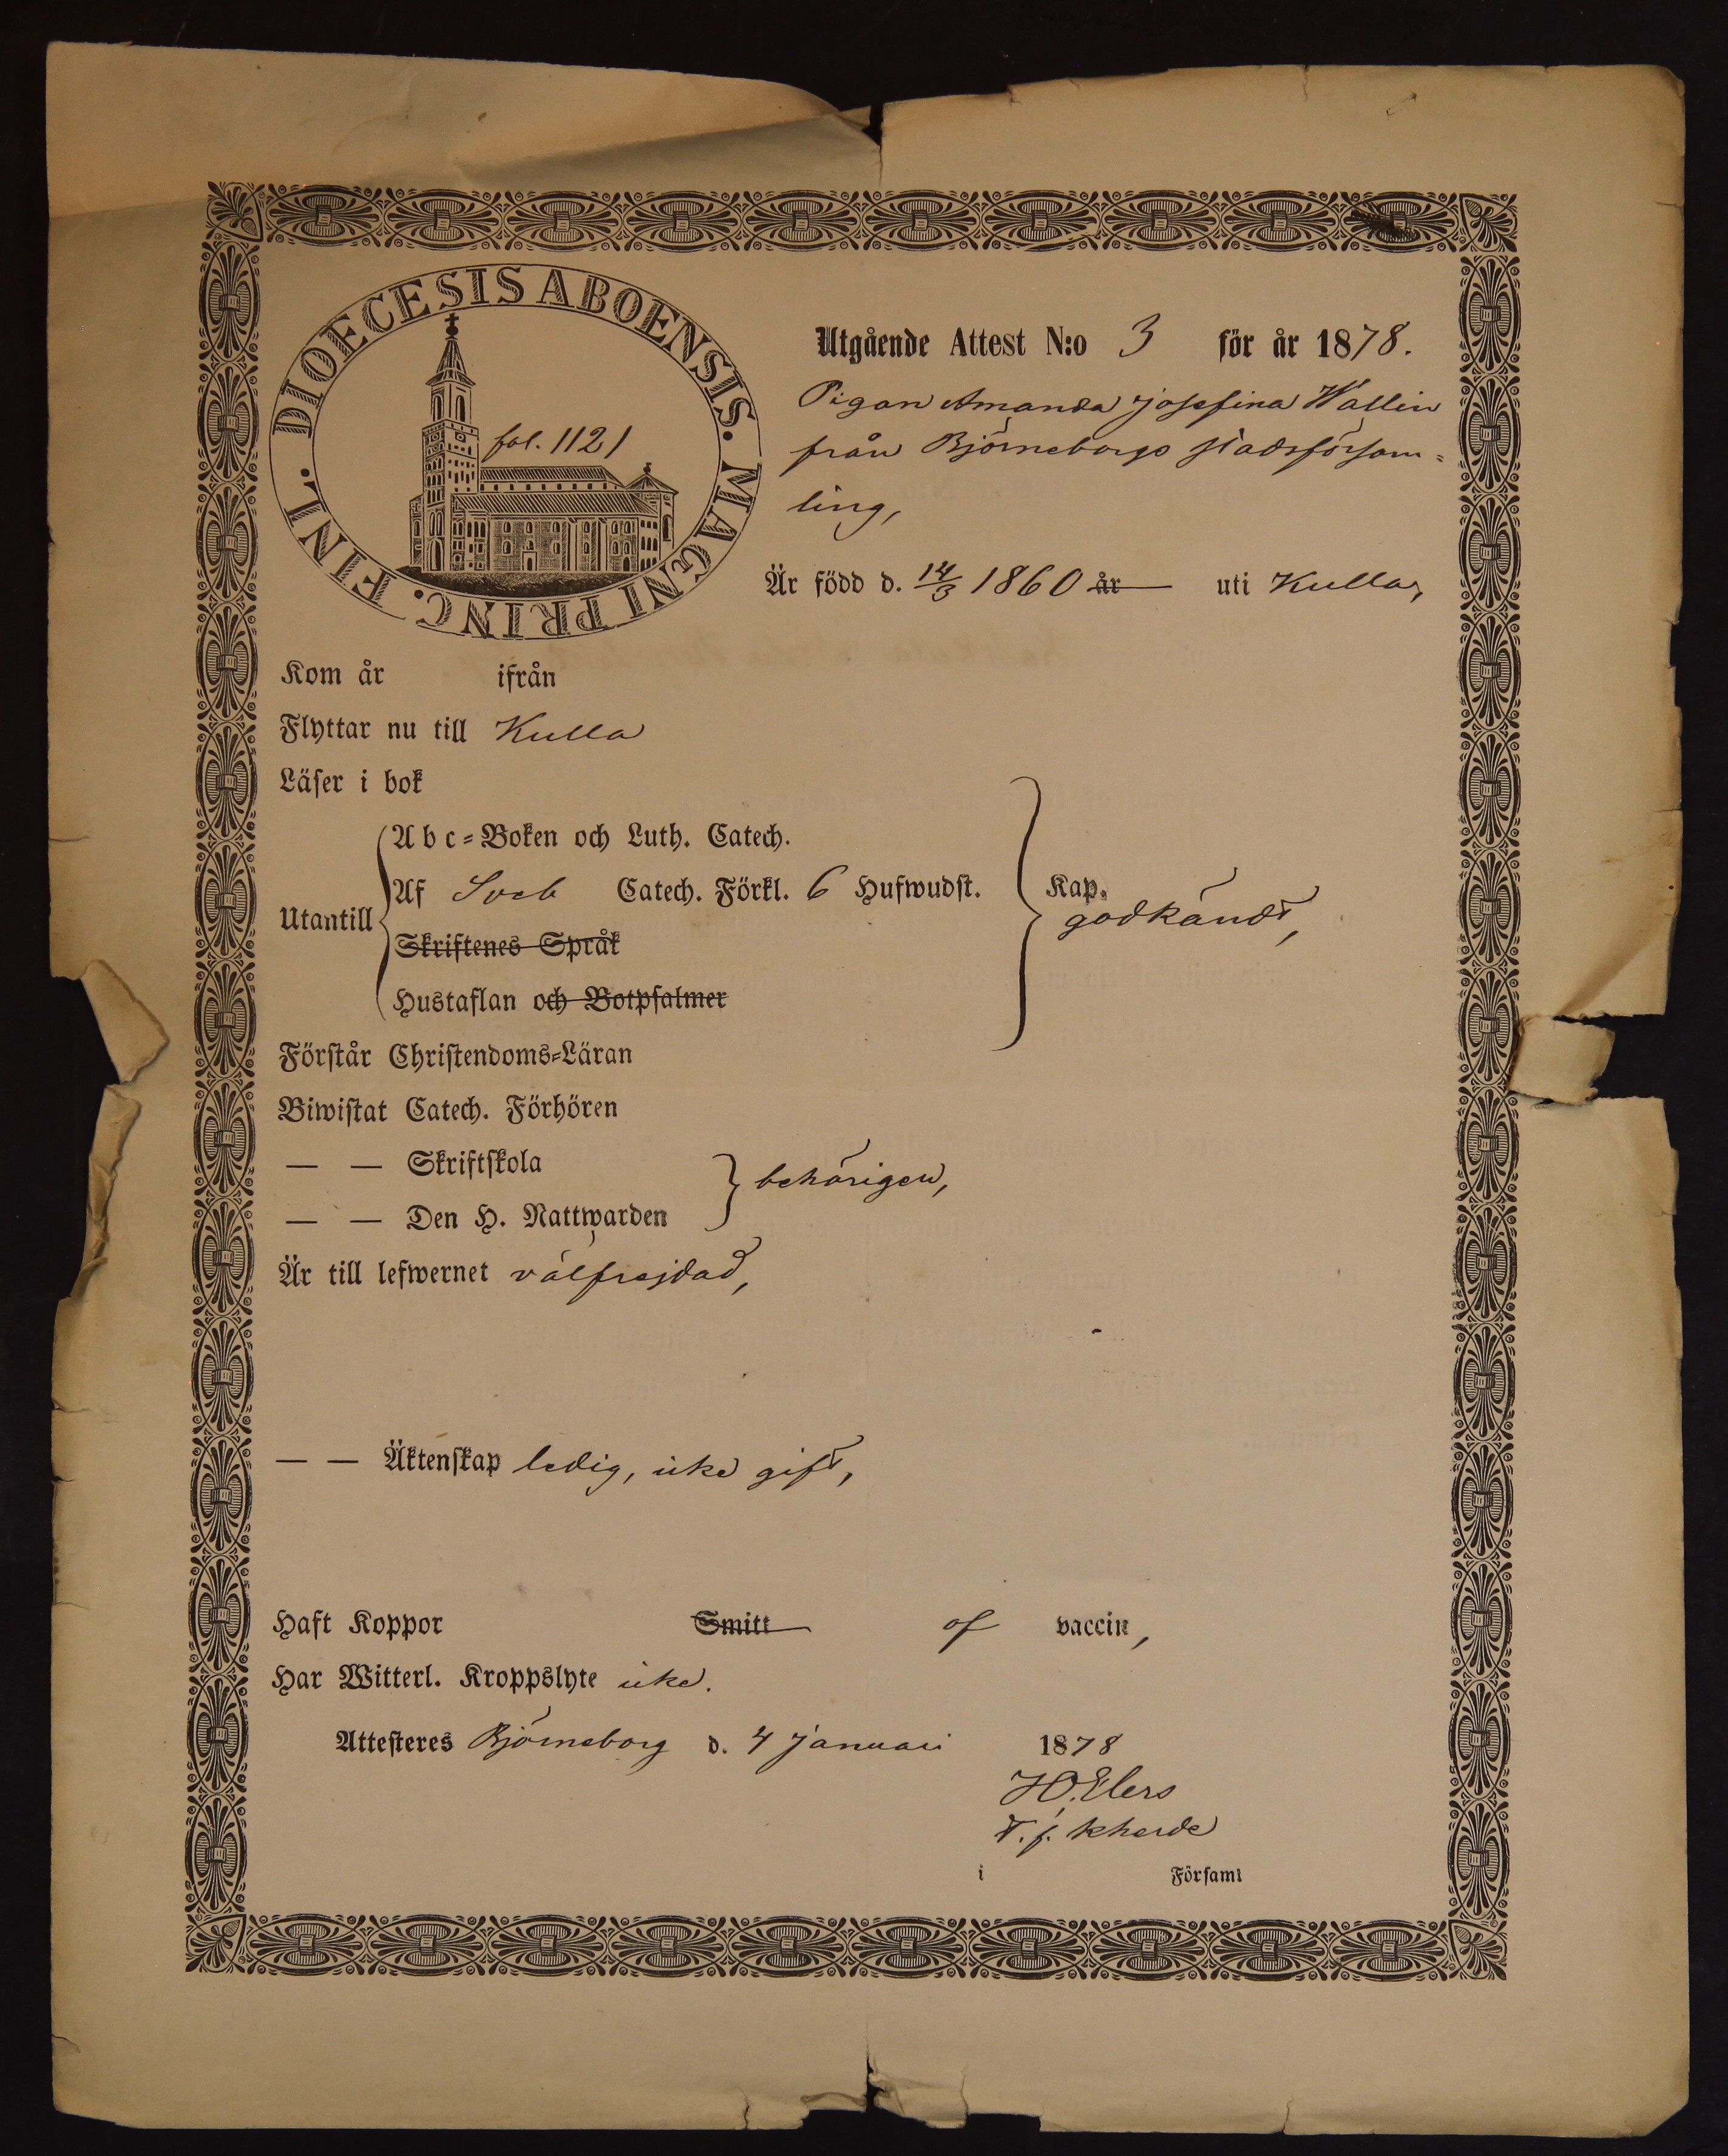 DIOECESIS ABOENSIS. MAGNI PRINC. FINL.
fol. 1121
Utgående Attest N:o 3 för år 1878.
Pigan Amanda Josefina Wallin
från Björneborgs stadsförsam-
ling,
Är född d. 14/3 1860 år uti Kulla,
Kom år ifrån
Flyttar nu till Kulla
Läser i bok
Abc-Boken och Luth. Catech.
Utantill Af Sveb Catech. Förkl. 6 Hufwudst. Kap. godkändt,
Skriftenes Språk
Hustaflan och Botpsalmer
Förstår Christendoms-Läran
Biwistat Catech. Förhören
— — Skriftskola
— — Den H. Nattwarden behörigen,
Är till lefwernet välfrejdad,
— — Äktenskap ledig, icke gift,
Haft Koppor Smitt af vaccin,
Har Witterl. Kroppslyte icke.
Attesteres Björneborg d. 4 Januari 1878
H.O. Elers
t.f. kherde
i Församl